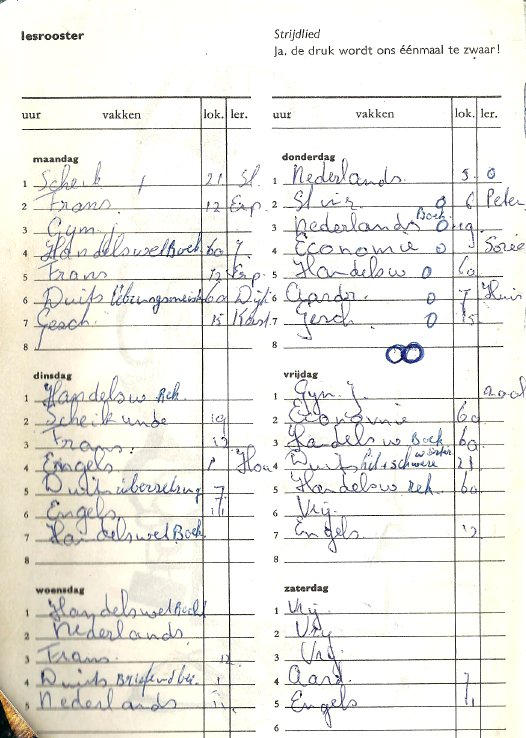 lesrooster
Strijdlied
Ja, de druk wordt ons éénmaal te zwaar!
uur vakken lok. ler.
maandag
1 Scheik 21 St.
2 Frans 12 Erp.
3 Gym.
4 Handelswet Boek. 60 7.
5 Frans 12 Erp.
6 Duits 60 Dijk
7 Gesch. 15
8
dinsdag
1 Handelsw Rek.
2 Scheikunde 19
3 Frans. 12
4 Engels
5 Duits übersetzung 7
6 Engels
7 Handelswet Boek.
8
woensdag
1 Handelswet Recht
2 Nederlands.
3 Frans. 12.
4 Duits
5 Nederlands
uur vakken lok. ler.
donderdag
1 Nederlands. 5 0
2 0 6 Peter
3 Nederlands Boek 0
4 Economie 0
5 Handelsw 0 60
6 Aardr. 0 7 Huis
7 Gesch 0 15
8
vrijdag
1 Gym. J.
2 Economie 60
3 Handelsw Boek 60
4 Duits 21
5 Handelsw Rek. 60
6 Vrij.
7 Engels. 12
8
zaterdag
1 Vrij.
2 Vrij
3 Vrij.
4 Aard. 7
5 Engels
6